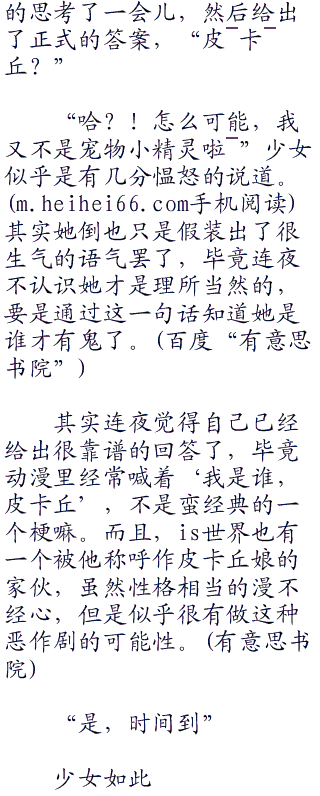 的思考了一会儿，然后给出
了正式的答案，“皮¯卡¯
丘？”
“哈？！怎么可能，我
又不是宠物小精灵啦¯”少女
似乎是有几分愠怒的说道。
(m.heihei66.com手机阅读)
其实她倒也只是假装出了很
生气的语气罢了，毕竟连夜
不认识她才是理所当然的，
要是通过这一句话知道她是
谁才有鬼了。(百度“有意思
书院”)
其实连夜觉得自己已经
给出很靠谱的回答了，毕竟
动漫里经常喊着‘我是谁，
皮卡丘’，不是蛮经典的一
个梗嘛。而且，is世界也有
一个被他称呼作皮卡丘娘的
家伙，虽然性格相当的漫不
经心，但是似乎很有做这种
恶作剧的可能性。(有意思书
院)
“是，时间到”
少女如此